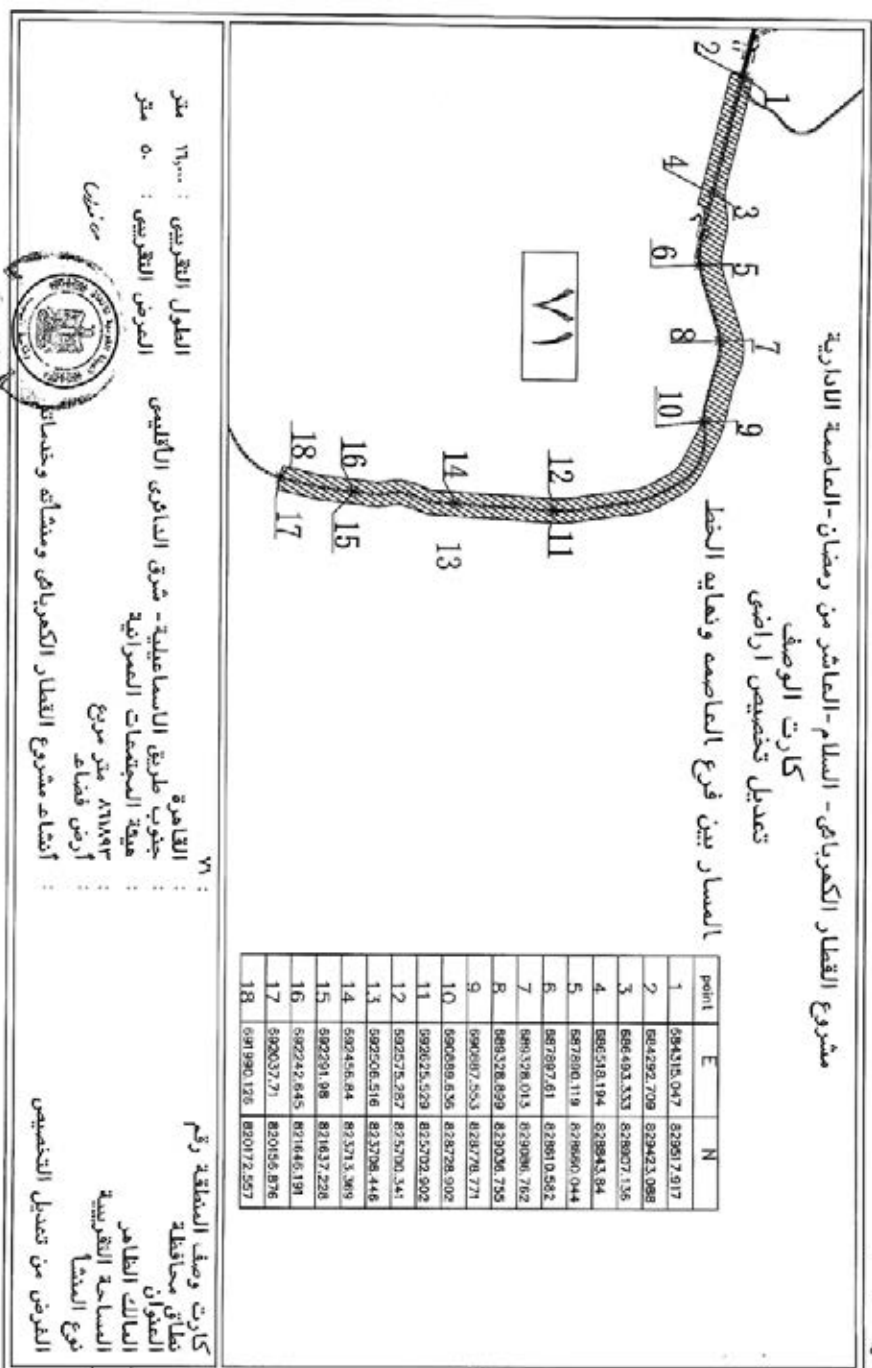 مشروع القطار الكهربائى - السلام-العاشر من رمضان-العاصمة الادارية
كارت الوصف
تعديل تخصيص اراضى
المسار بين فرع العاصمه ونهايه الخط
1
2
3
4
5
6
7
8
9
10
11
12
13
14
15
16
17
18
٧١
point E N
1 684315.047 829517.917
2 684292.709 829423.088
3 686493.333 828907.136
4 686518.194 828843.84
5 687890.119 828660.044
6 687897.61 828610.582
7 689328.013 829086.762
8 689328.899 829036.755
9 690887.553 828778.771
10 690889.636 828728.902
11 692625.529 825702.902
12 692575.287 825700.341
13 692506.516 823708.448
14 692456.84 823713.369
15 692291.98 821637.228
16 692242.645 821646.191
17 692037.71 820156.876
18 691990.126 820172.557
كارت وصف المنطقة رقم : ٧١
نطاق محافظة : القاهرة
العنوان : جنوب طريق الاسماعيلية - شرق الدائرى الأقليمى
المالك الظاهر : هيئة المجتمعات العمرانية
المساحة التقريبية : ٨٦١٨٩٣ متر مربع
نوع المنشأ : أرض فضاء
الغرض من تعديل التخصيص : أنشاء مشروع القطار الكهربائى ومنشأته وخدماته
الطول التقريبى : ١٦,٠٠٠ متر
العرض التقريبى : ٥٠ متر